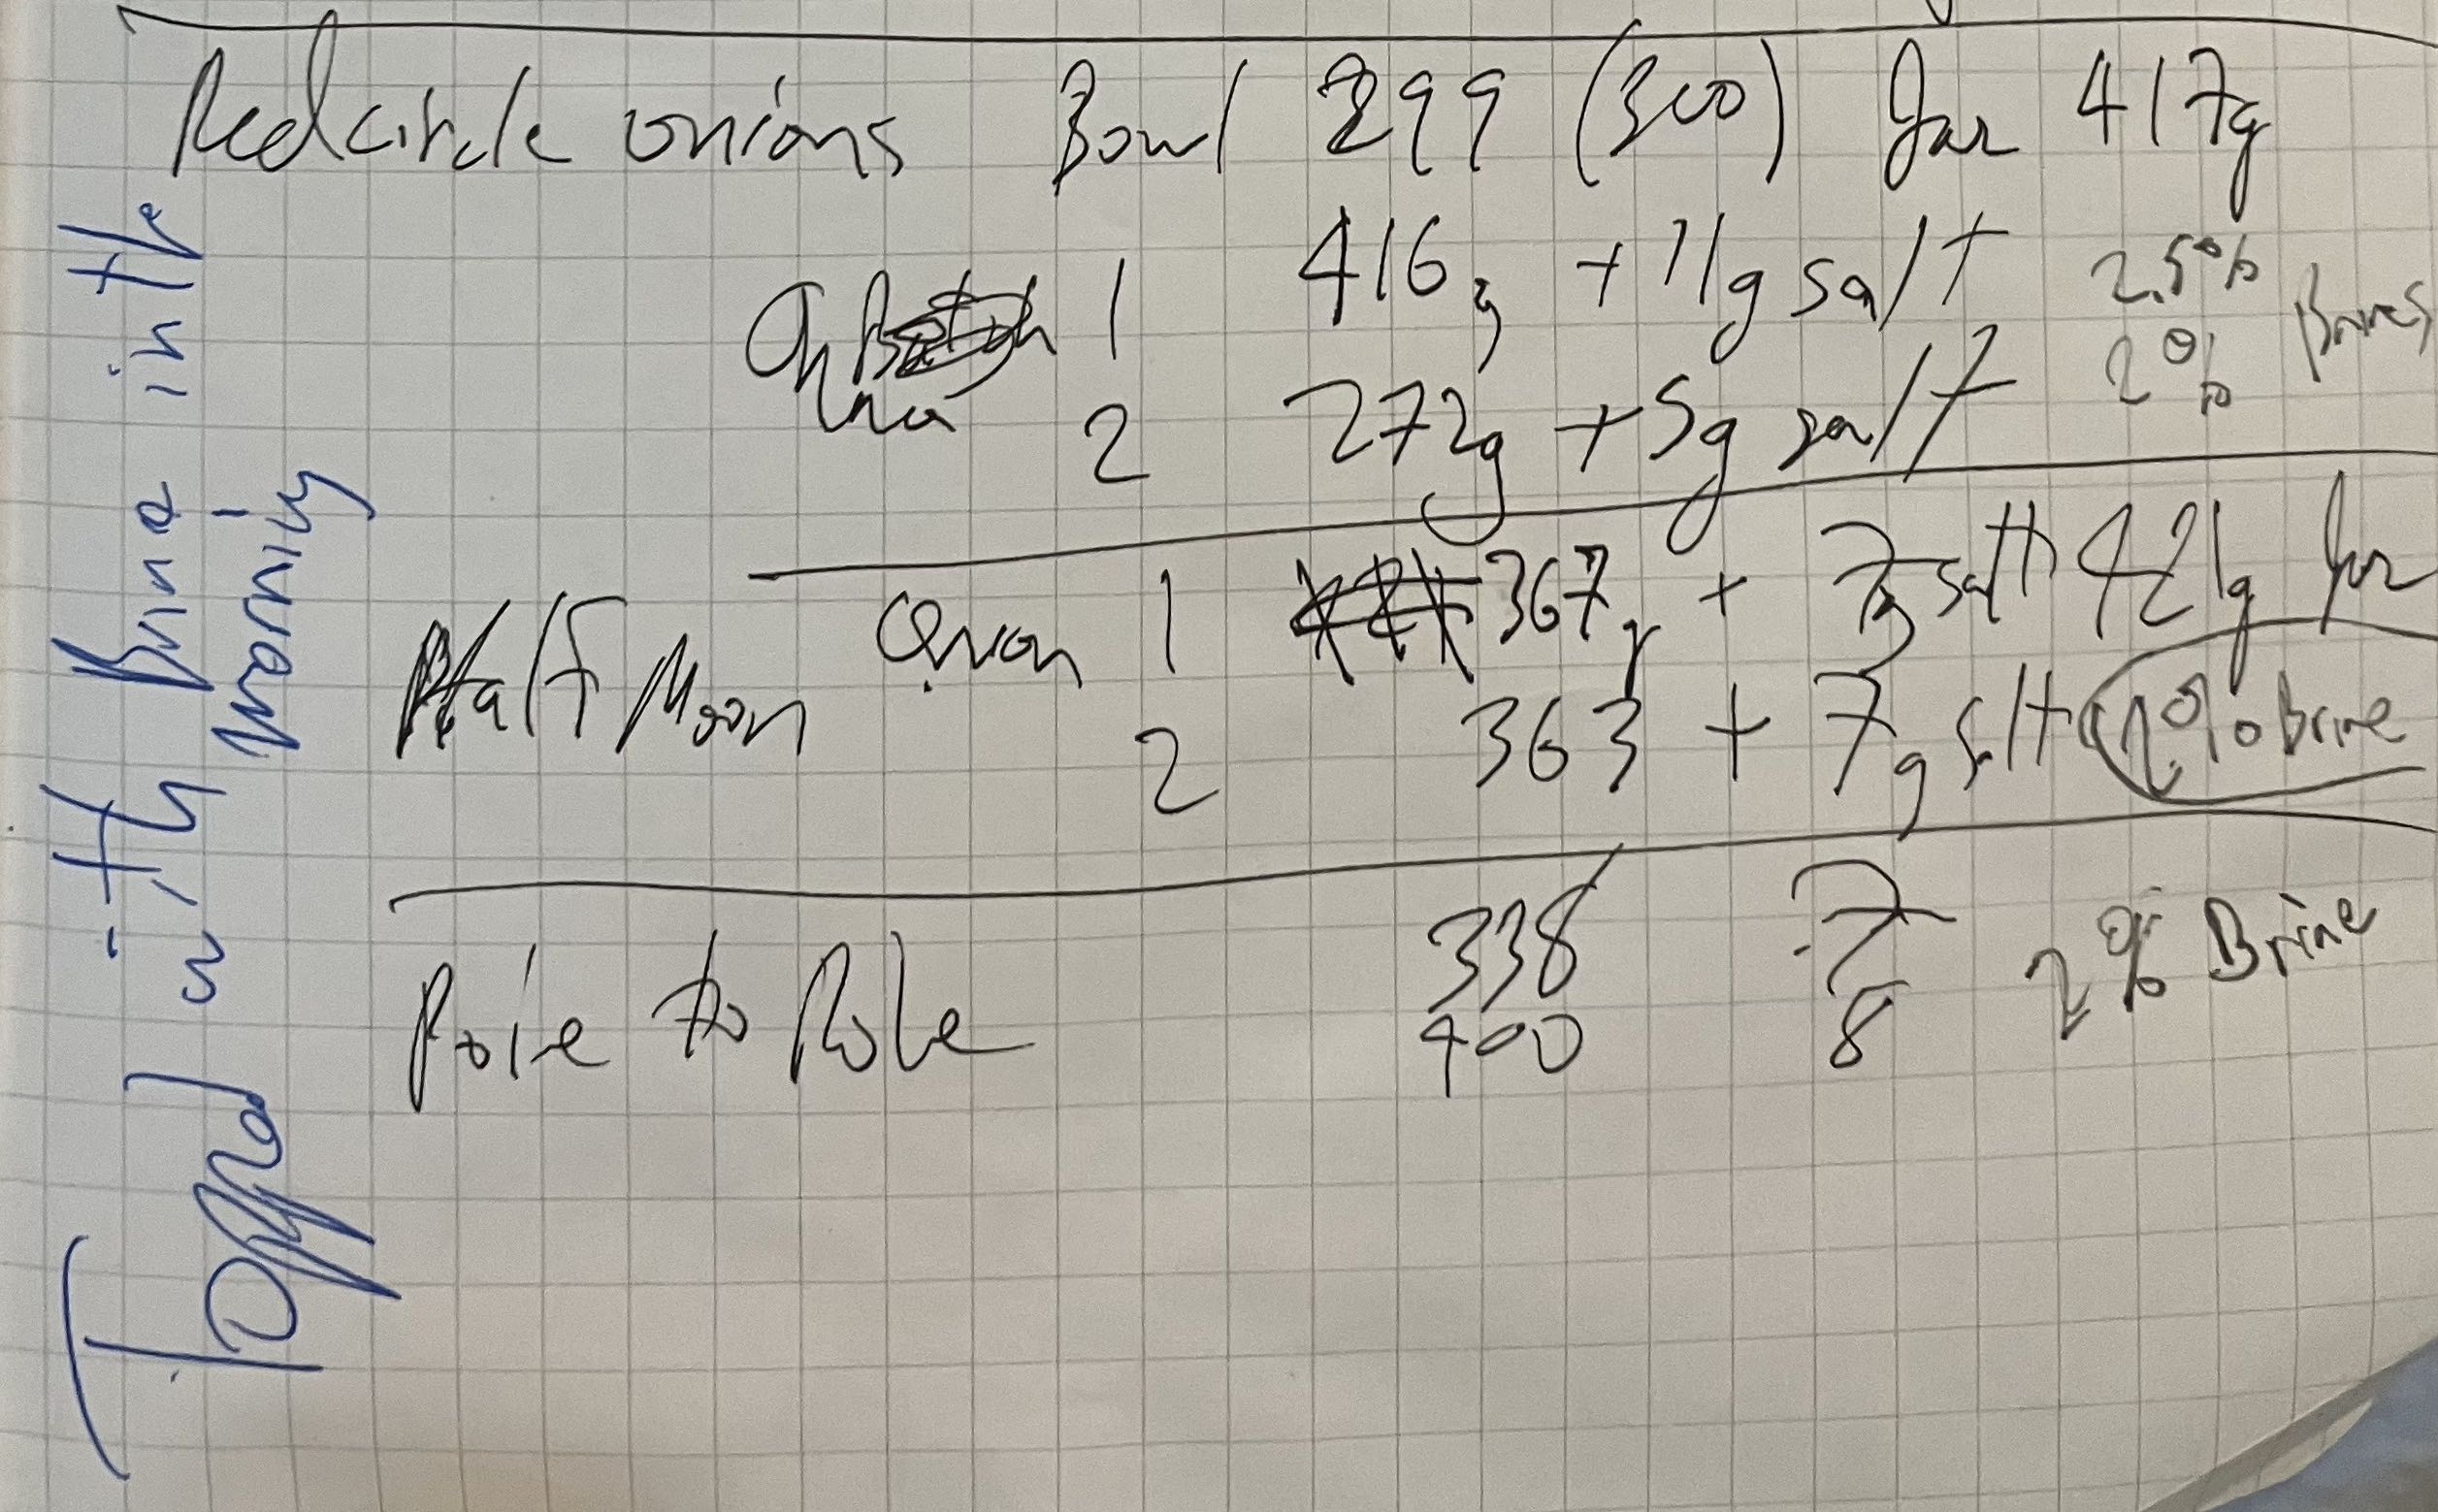 Red circle onions Bowl 299 (300) Jar 417g
1 416g + 11g salt 2.5%
2 272g + 5g salt 2% Brines
Half Moon Onion 1 367g + 7g salt 421g Jar
2 363 + 7g salt 2% Brine
Pole to Pole 338 7 2% Brine
400 8
Topped with Brine in the
morning